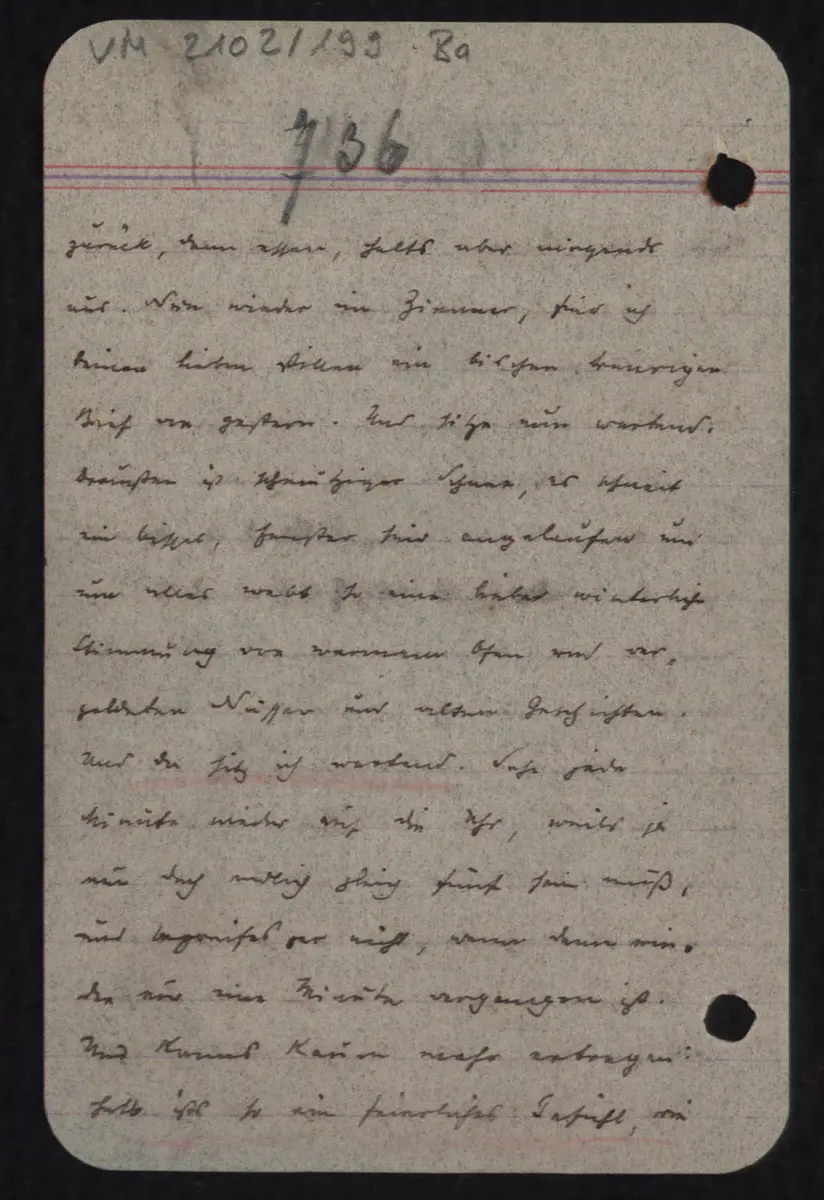 VM 2102/199 Ba
736
zurück, dann essen, halts aber nirgends
aus. Nun wieder im Zimmer, find ich
deinen lieben stillen ein bischen traurigen
Brief von gestern. Und sitze nun wartend.
draußen ist schmutziger Schnee, es schneit
ein bissel, Fenster sind angelaufen und
nun alles webt so eine liebe winterliche
Stimmung von warmem Ofen und ver-
goldeten Nüssen und alten Geschichten.
Und da sitz ich wartend. Sehe jede
Minute wieder auf die Uhr, weils ja
nun doch endlich gleich fünf sein muß,
und begreifes gar nicht, wenn dann wie-
der nur eine Minute vergangen ist.
Und kanns kaum mehr ertragen:
halb ists so ein feierliches Gefühl, wie